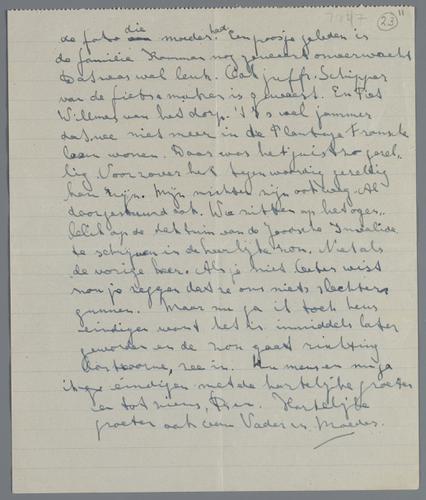 7747 23
de foto die moeder had. Een poosje geleden is
de familie Komman nog geweest onverwacht
Dat was wel leuk. Ook juffr. Schipper
van de fietsenmaker is geweest. En Piet
Willems van het dorp. 't Is wel jammer
dat we niet meer in de Plantage Franschelaan
wonen. Daar was het juist zo gezel-
lig. Voor zover het tegenwoordig gezellig
kan zijn. Mijn nichten zijn ook weg. Al
doorgestuurd ook. We zitten op het ogen-
blik op de daktuin van de Joodsche Invalide
te schrijven in de heerlijke zon. Net als
de vorige keer. Als je niet beter wist
zou je zeggen dat ze ons niets slechters
gunnen. Maar nu ga ik toch heus
eindigen want het is inmiddels later
geworden en de zon gaat richting
Oostvoorne, zee in. Nu mensen nu ga
ik eindigen met de hartelijke groeten
en tot ziens, Hartelijke
groeten ook aan Vader en Moeder.